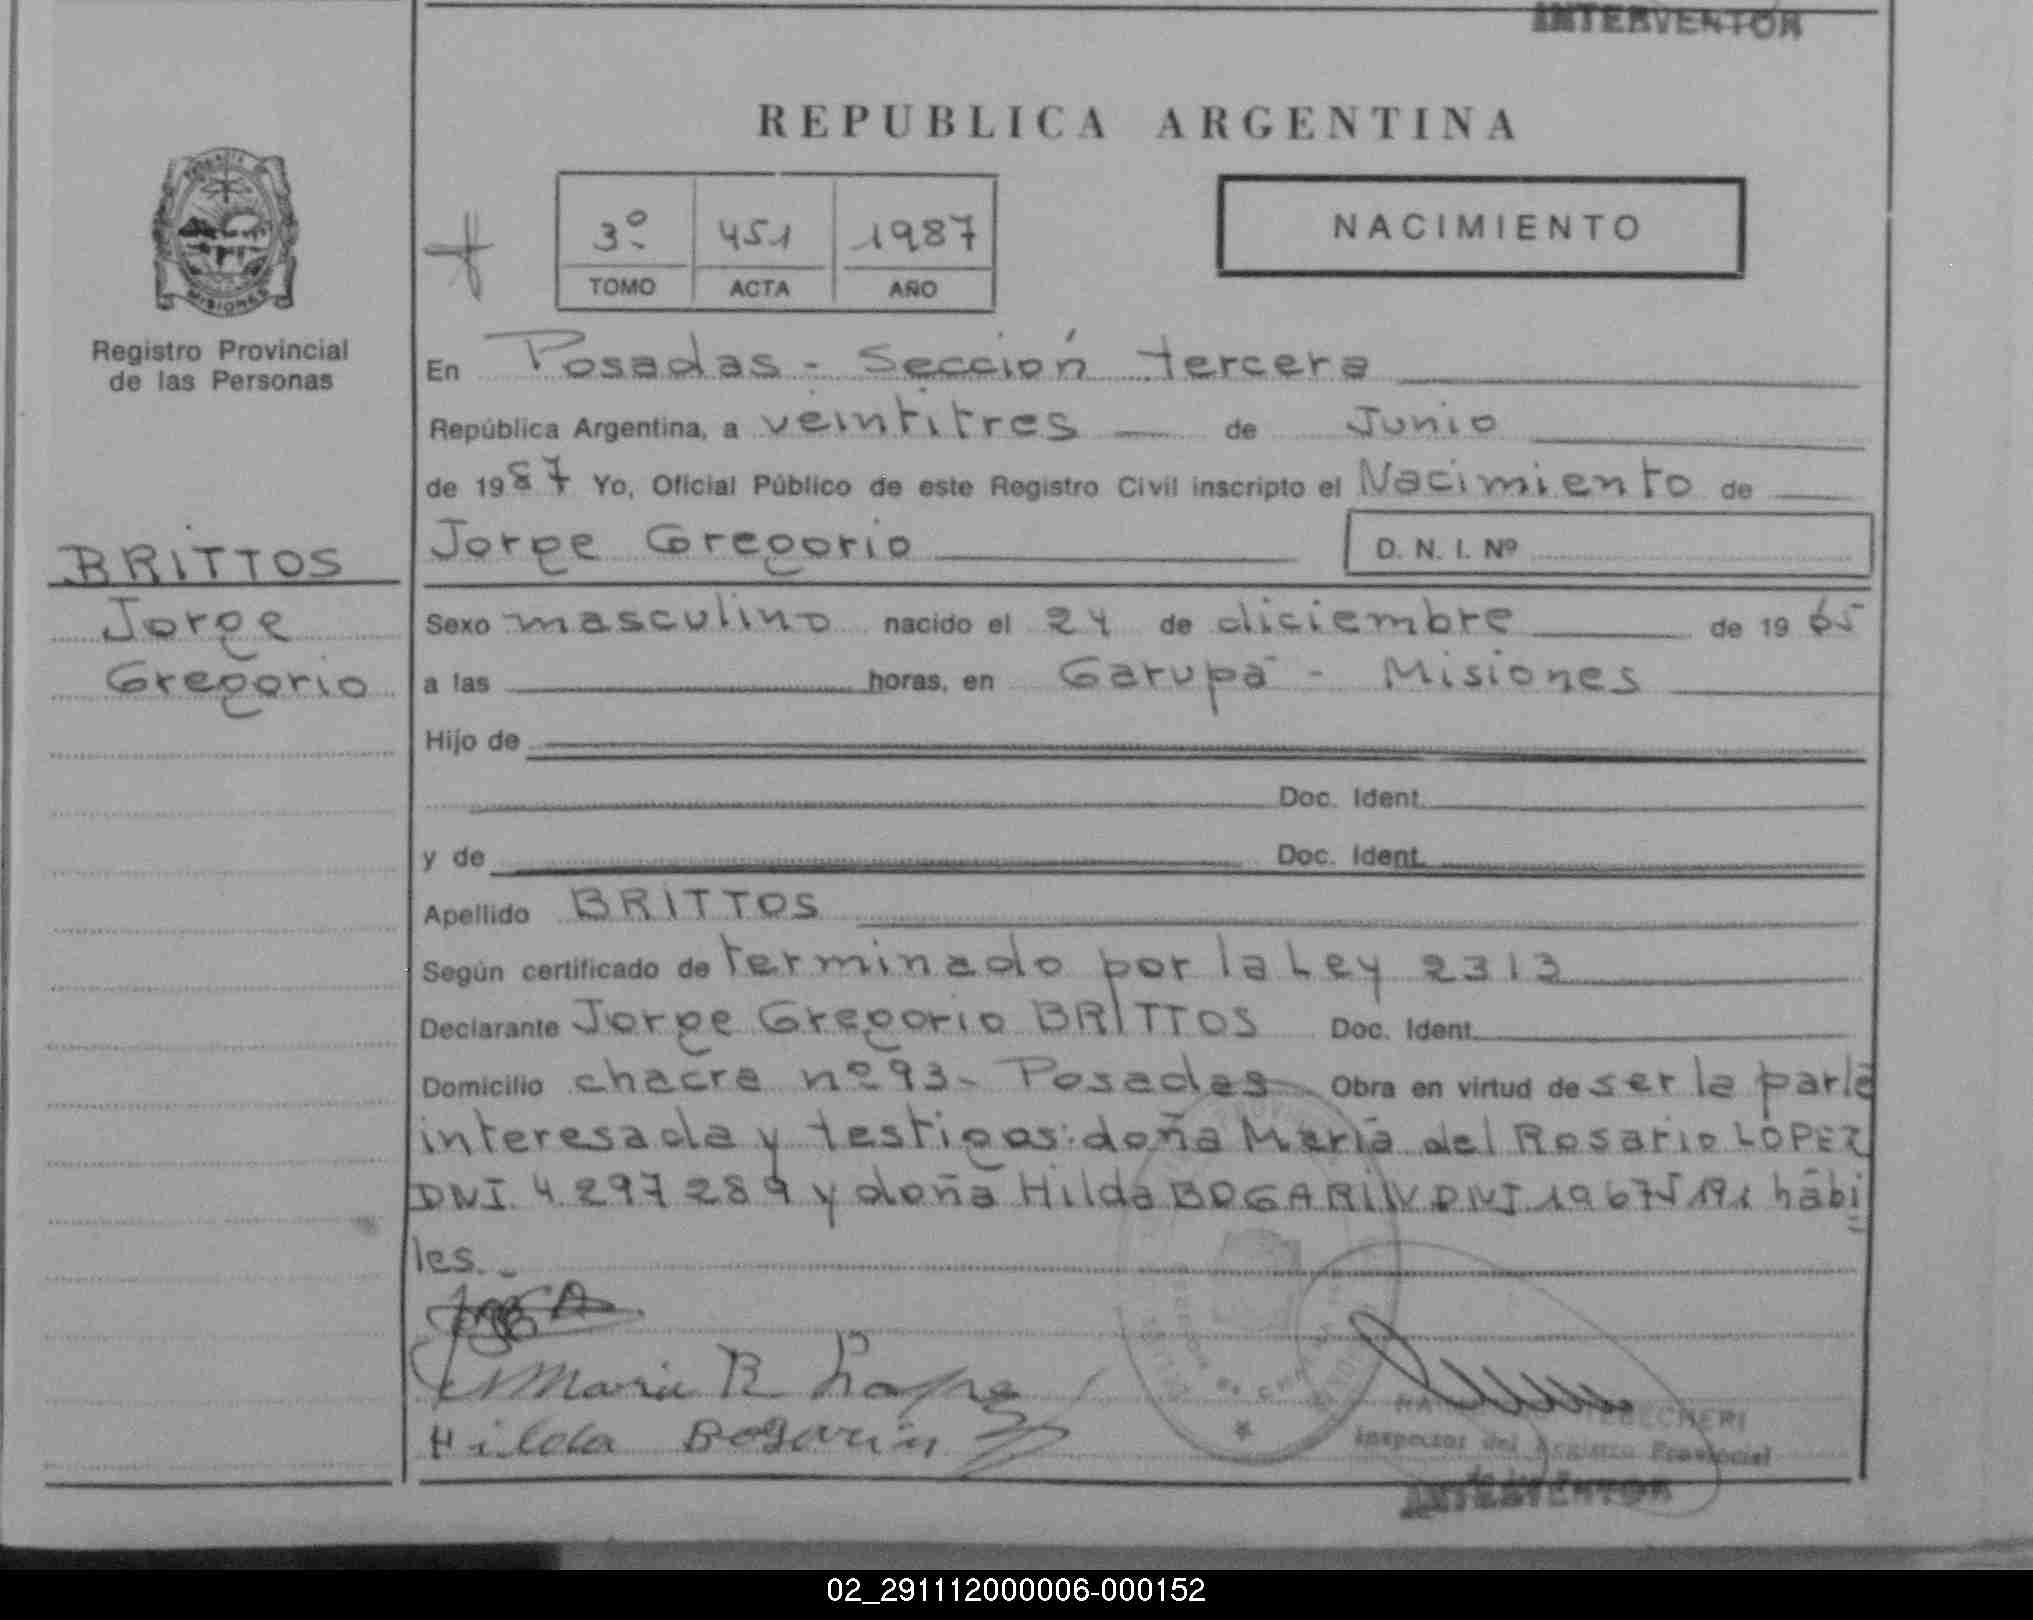 INTERVENTOR
REPUBLICA ARGENTINA
MISIONES
3º 451 1987
TOMO ACTA AÑO
NACIMIENTO
Registro Provincial
de las Personas
En Posadas - Sección tercera
República Argentina, a veintitres de Junio
de 1987 Yo, Oficial Público de este Registro Civil inscripto el Nacimiento de
Jorge Gregorio D. N. I. Nº
BRITTOS
Jorge
Gregorio
Sexo masculino nacido el 24 de diciembre de 1965
a las horas, en Garupá - Misiones
Hijo de
Doc. Ident.
y de Doc. Ident.
Apellido BRITTOS
Según certificado de terminado por la Ley 2313
Declarante Jorge Gregorio BRITTOS Doc. Ident.
Domicilio chacra nº 93- Posadas Obra en virtud de ser la parte
interesada y testigos: doña María del Rosario LOPEZ
DNI 4.297289 y doña Hilda BOGARIN DNI 19675191 hábi
les.-
Maria R
Hilda Bogarin
Inspector del Registro Provincial
INTERVENTOR
02_291112000006-000152